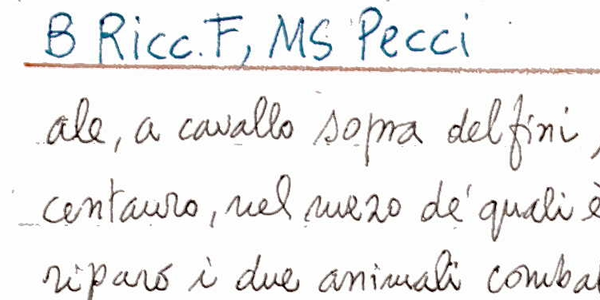 B Ricc. F, MS Pecci
ale, a cavallo sopra delfini,
centauro, nel mezo de' quali è
riparò i due animali combat